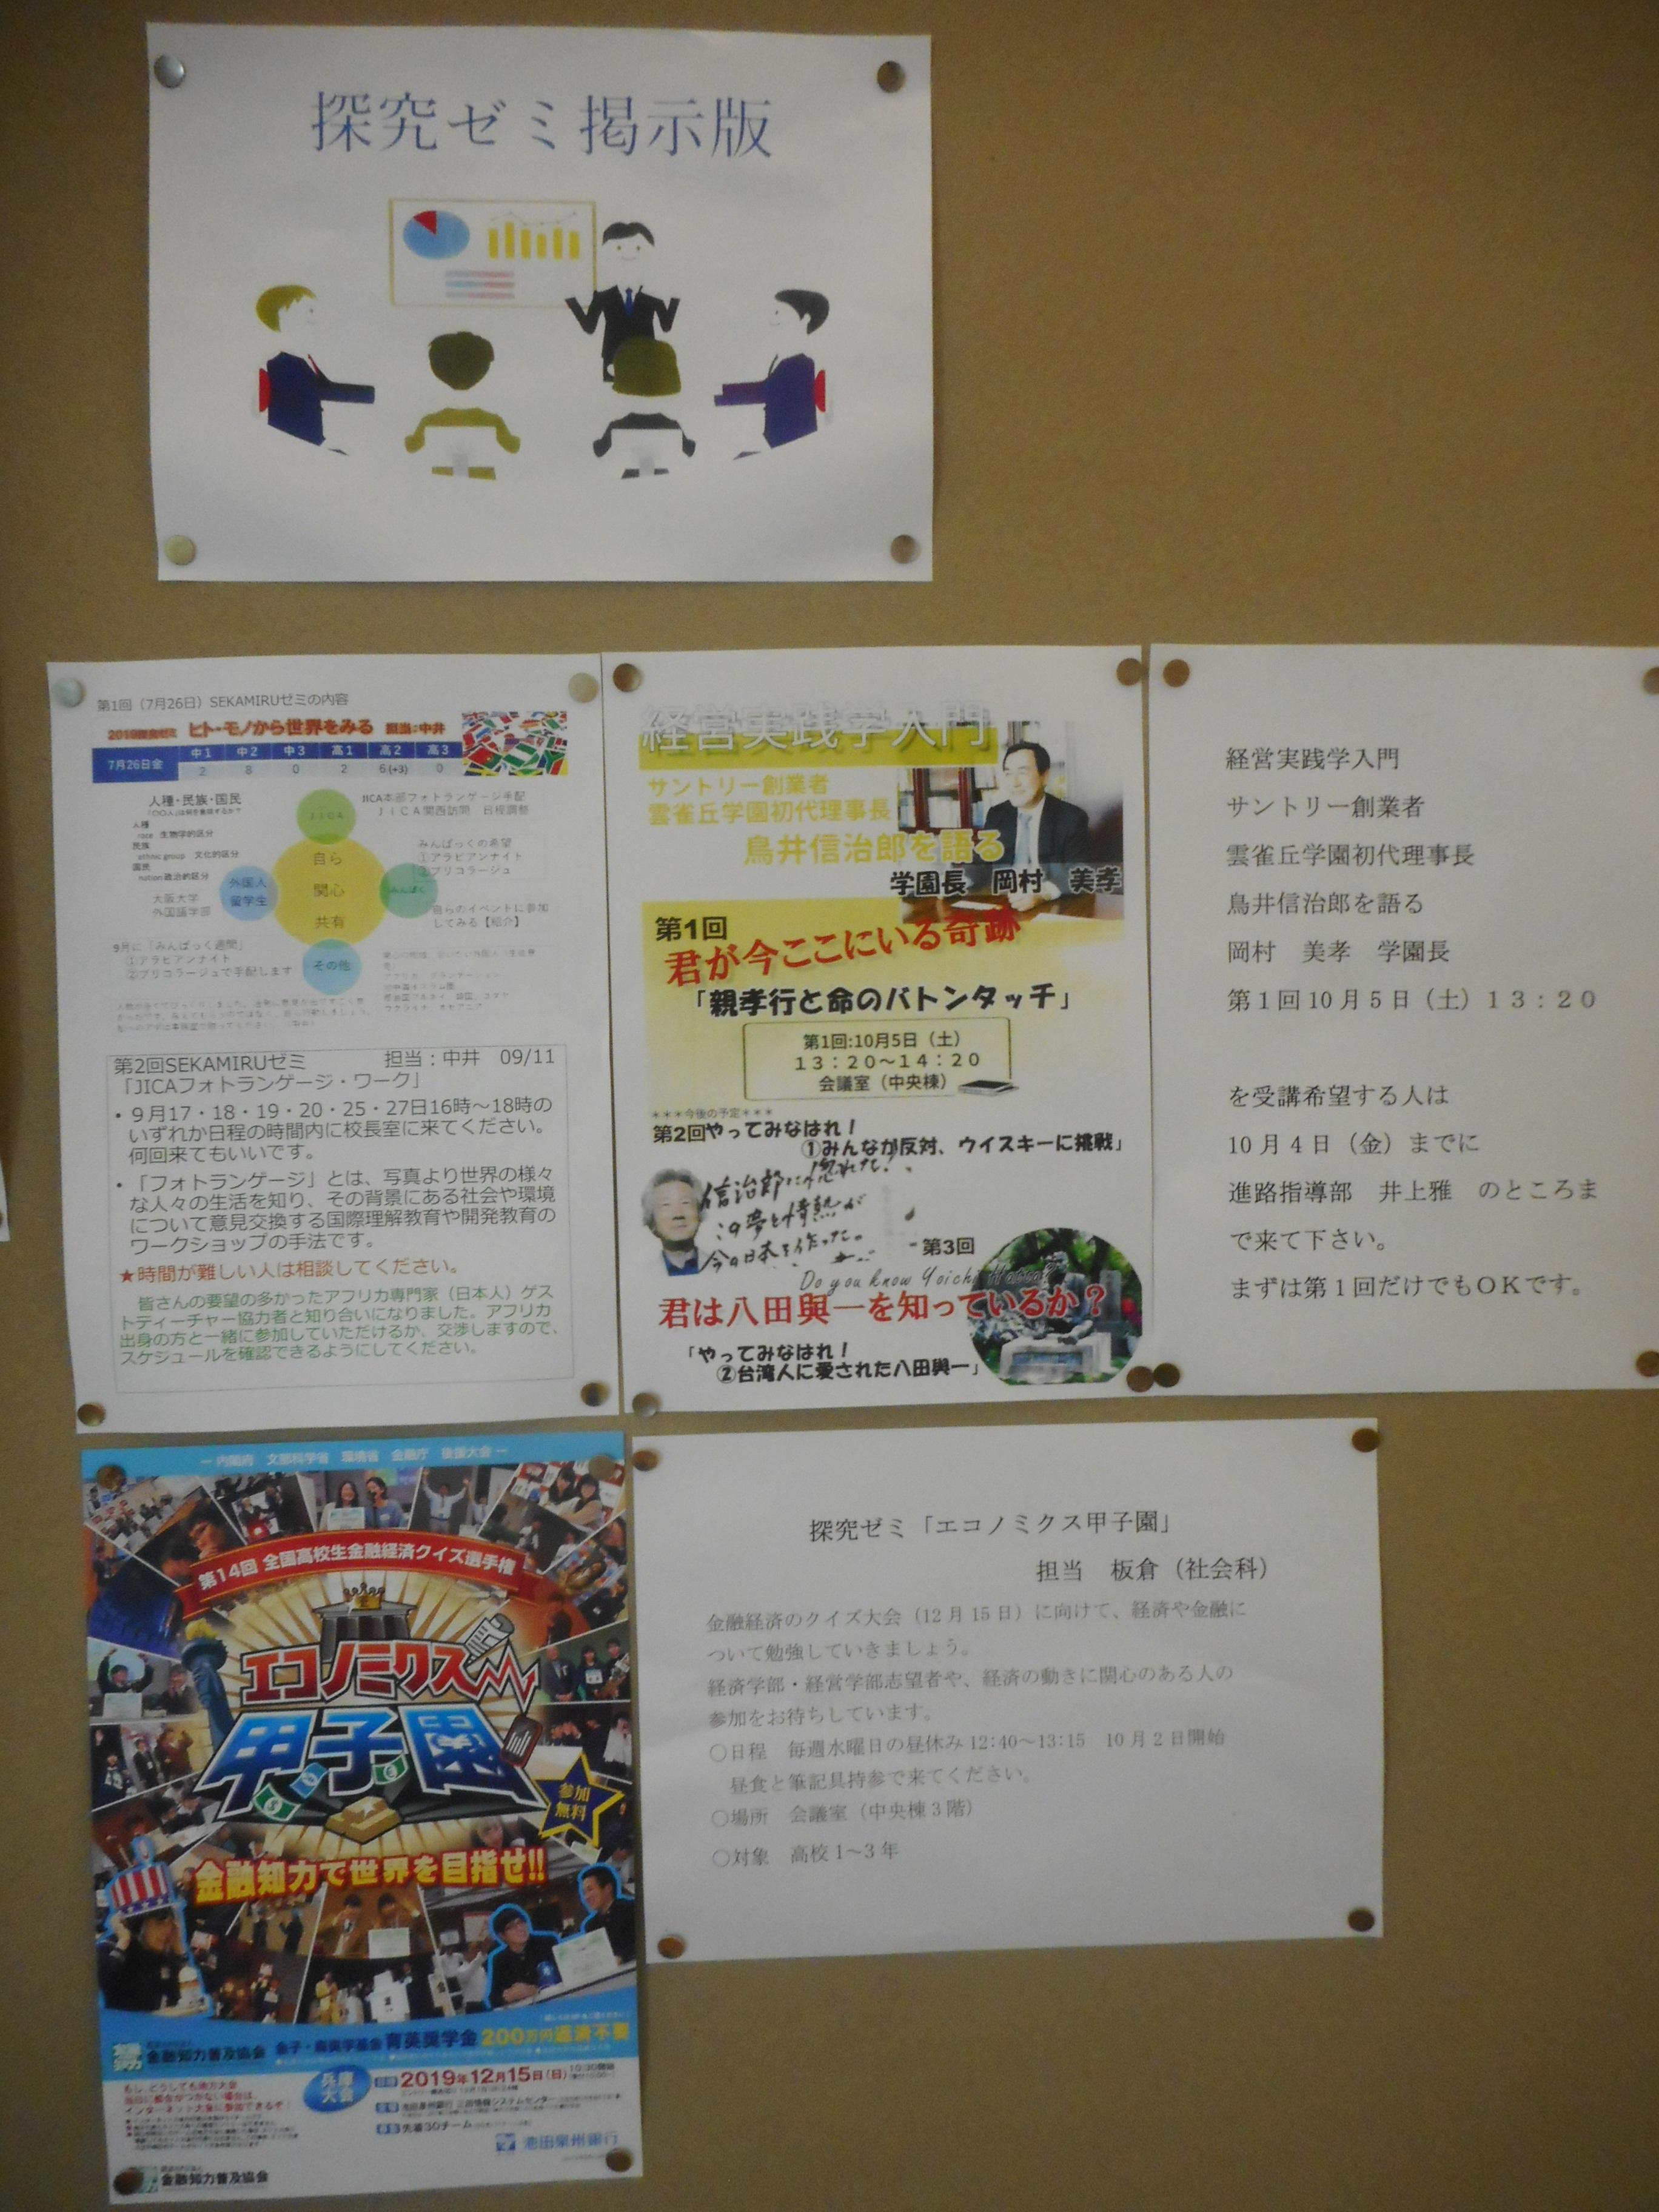 探究ゼミ掲示版
第1回（7月26日）SEKAMIRUゼミの内容
ヒト・モノから世界をみる 担当:中井
中1 中2 中3 高1 高2 高3
7月26日金 2 8 0 2 6(+3) 0
人種・民族・国民
人種
race 生物学的区分
民族
ethnic group 文化的区分
国民
nation 政治的区分
大阪大学
外国語学部
9月に「みんぱっく週間」
①アラビアンナイト
②ブリコラージュで手配します
JICA
自ら
関心
共有
外国人
留学生
みんぱく
その他
JICA本部フォトランゲージ手配
JICA関西訪問 日程調整
みんぱっくの希望
①アラビアンナイト
②ブリコラージュ
自らのイベントに参加
してみる【紹介】
第2回SEKAMIRUゼミ 担当：中井 09/11
「JICAフォトランゲージ・ワーク」
・9月17・18・19・20・25・27日16時～18時の
いずれか日程の時間内に校長室に来てください。
何回来てもいいです。
・「フォトランゲージ」とは、写真より世界の様々
な人々の生活を知り、その背景にある社会や環境
について意見交換する国際理解教育や開発教育の
ワークショップの手法です。
★時間が難しい人は相談してください。
皆さんの要望の多かったアフリカ専門家（日本人）ゲス
トティーチャー協力者と知り合いになりました。アフリカ
出身の方と一緒に参加していただけるか、交渉しますので、
スケジュールを確認できるようにしてください。
経営実践学入門
サントリー創業者
雲雀丘学園初代理事長
鳥井信治郎を語る
学園長 岡村 美孝
第1回
君が今ここにいる奇跡
「親孝行と命のバトンタッチ」
第1回:10月5日（土）
13：20～14：20
会議室（中央棟）
＊＊＊今後の予定＊＊＊
第2回やってみなはれ！
①みんなが反対、ウイスキーに挑戦」
信治郎に惚れた！
この夢と情熱が
今の日本を作った。
第3回
Do you know Yoichi Hatta?
君は八田與一を知っているか？
「やってみなはれ！
②台湾人に愛された八田與一」
経営実践学入門
サントリー創業者
雲雀丘学園初代理事長
鳥井信治郎を語る
岡村 美孝 学園長
第1回10月5日（土）13：20
を受講希望する人は
10月4日（金）までに
進路指導部 井上雅 のところま
で来て下さい。
まずは第1回だけでもOKです。
－内閣府 文部科学省 環境省 金融庁 後援大会－
第14回 全国高校生金融経済クイズ選手権
エコノミクス
甲子園
参加
無料
金融知力で世界を目指せ!!
金融知力普及協会 育英奨学金 200万円返済不要
もし、どうしても地方大会
当日に都合がつかない場合は、
インターネット大会に参加できるぞ！
兵庫
大会
2019年12月15日(日) 10:30開始
先着30チーム
池田泉州銀行
金融知力普及協会
探究ゼミ「エコノミクス甲子園」
担当 板倉（社会科）
金融経済のクイズ大会（12月15日）に向けて、経済や金融に
ついて勉強していきましょう。
経済学部・経営学部志望者や、経済の動きに関心のある人の
参加をお待ちしています。
○日程 毎週水曜日の昼休み12:40～13:15 10月2日開始
昼食と筆記具持参で来てください。
○場所 会議室（中央棟3階）
○対象 高校1～3年